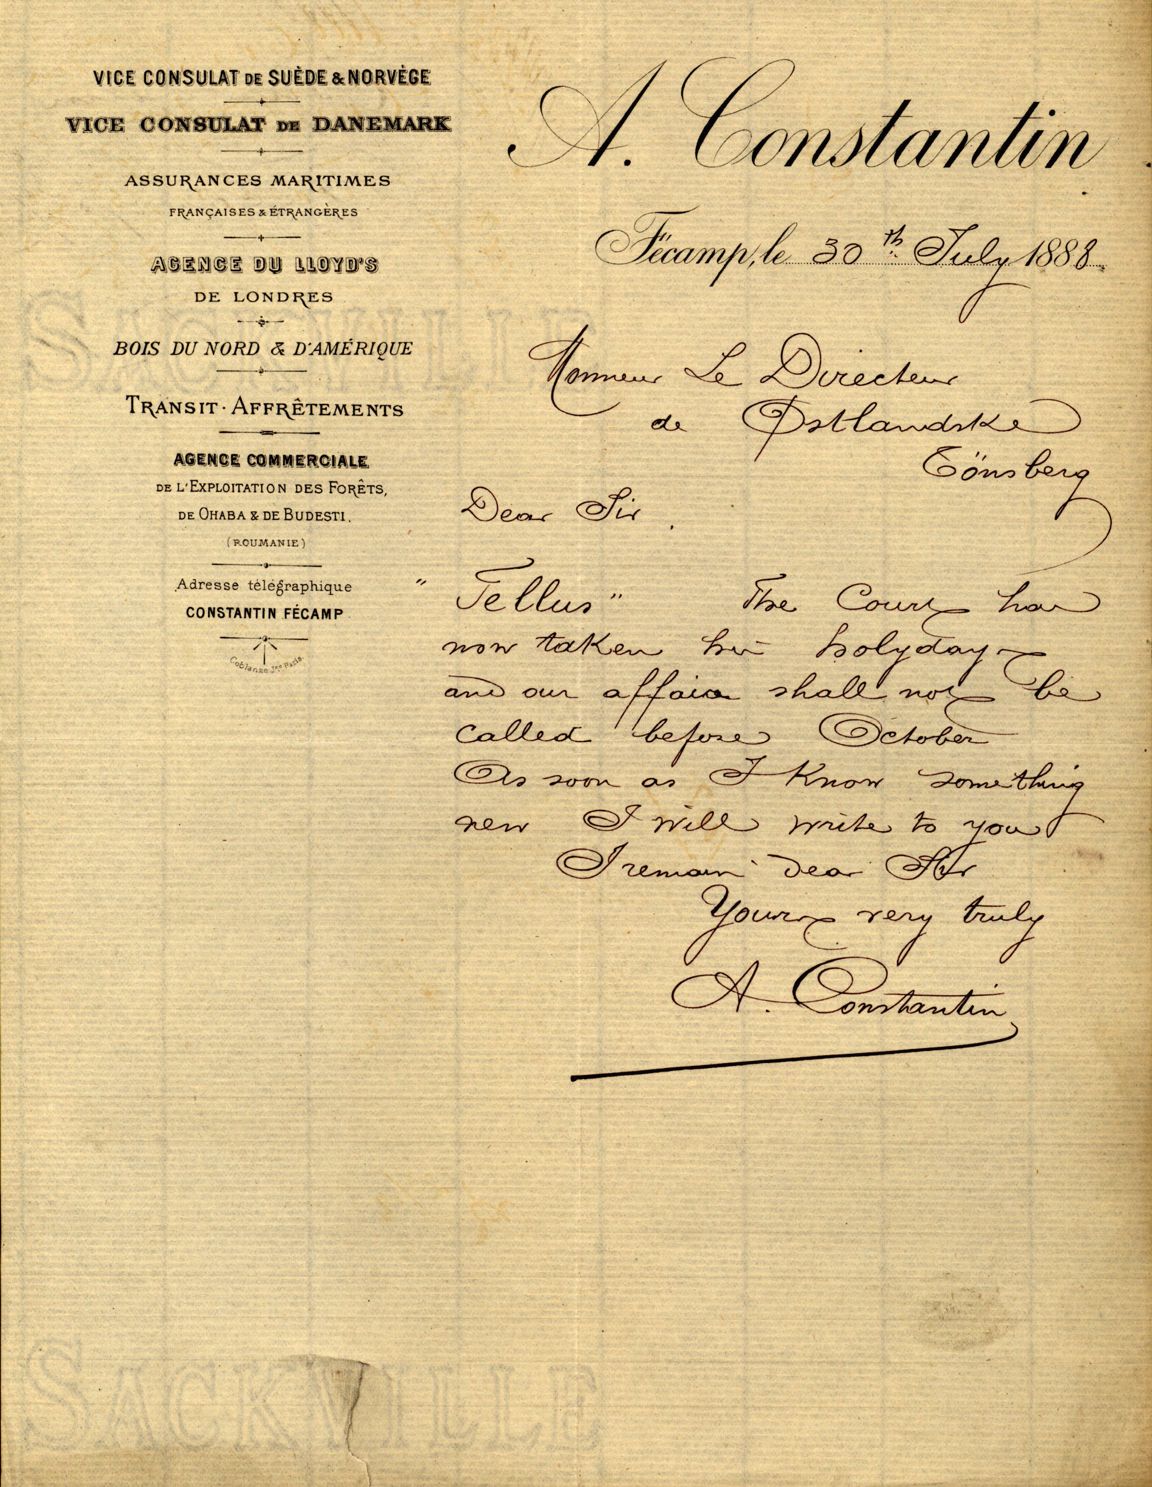 VICE CONSULAT DE SUÈDE & NORVÈGE
VICE CONSULAT DE DANEMARK
ASSURANCES MARITIMES
FRANÇAISES & ÉTRANGÈRES
AGENCE DU LLOYD'S
DE LONDRES
BOIS DU NORD & D'AMÉRIQUE
TRANSIT · AFFRÊTEMENTS
AGENCE COMMERCIALE
DE L'EXPLOITATION DES FORÊTS,
DE OHABA & DE BUDESTI.
(ROUMANIE)
Adresse télégraphique
CONSTANTIN FÉCAMP
Coblence Jne Paris
A. Constantin
Fécamp, le 30th July 1888
Monsieur Le Directeur
de Østlandske
Tönsberg
Dear Sir
"Tellus" The Court has
now taken his holydays
and our affair shall not be
called before October
As soon as I Know something
new I will write to you
I remain dear Sir
Yours very truly
A. Constantin
SACKVILLE
SACKVILLE